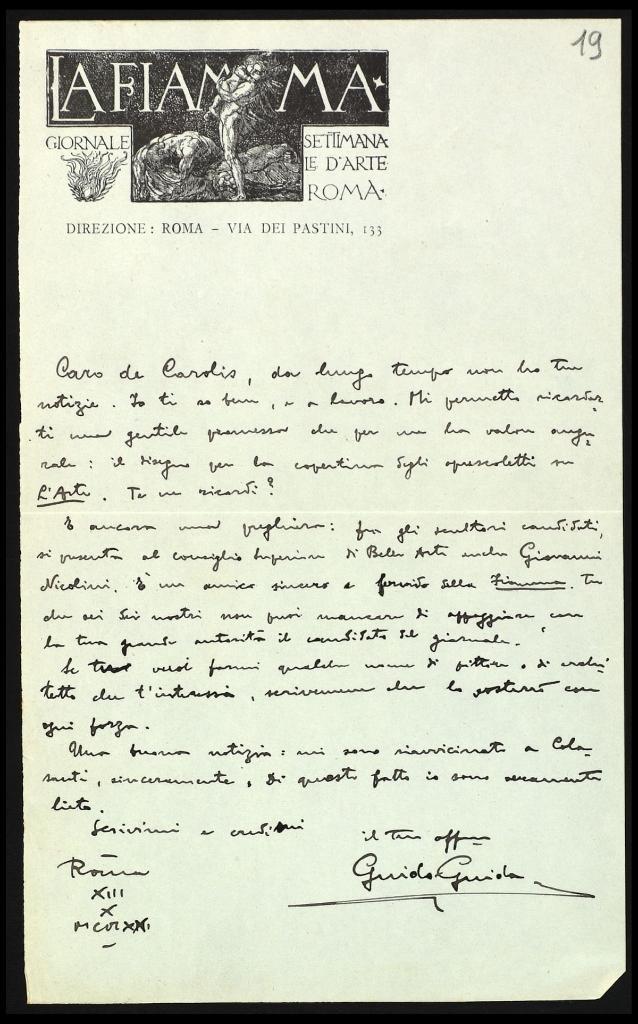 19
LA FIAMMA
GIORNALE SETTIMANA
LE D'ARTE
ROMA
DIREZIONE: ROMA - VIA DEI PASTINI, 133
Caro de Carolis, da lungo tempo non ho tue
notizie. Io ti so bene, e a lavoro. Mi permetto ricordar
ti una gentile promessa che per me ha valore augu
rale: il disegno per la copertina degli opuscoletti su
L'Arte. Te ne ricordi?
E ancora una preghiera: fra gli scultori candidati,
si presenta al consiglio Superiore di Belle Arti anche Giovanni
Nicolini. È un amico sincero e fervido della Fiamma. Tu
che sei dei nostri non puoi mancare di appoggiare con
la tua grande autorità il candidato del giornale.
Se vuoi farmi qualche nome di pittore o di archi
tetto che t'interessa, scrivemene che lo sosterrò con
ogni forza.
Una buona notizia: mi sono riavvicinato a Cola
santi, sinceramente. Di questo fatto io sono veramente
lieto.
Scrivimi e credimi
il tuo aff
Guido Guida
Roma
XIII
X